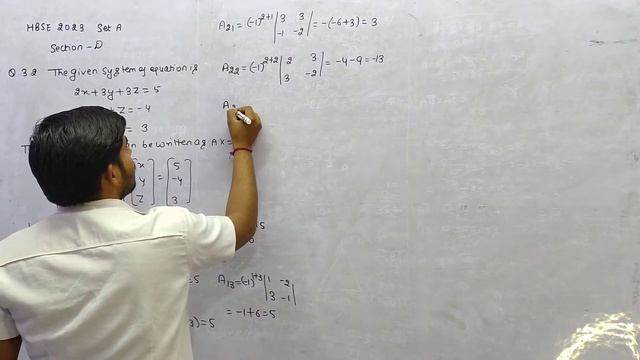 HBSE 2023 Set A
Section - D
Q 32 The given system of equation is
2x + 3y + 3z = 5
+ z = -4
= 3
T n be written as AX =
[x y z] = [5 -4 3]
5
0
= 5
3) = 5
A21 = (-1)^2+1 |3 3 -1 -2| = -(-6+3) = 3
A22 = (-1)^2+2 |2 3 3 -2| = -4-9 = -13
A2
A13 = (-1)^1+3 |1 -2 3 -1|
= -1+6 = 5